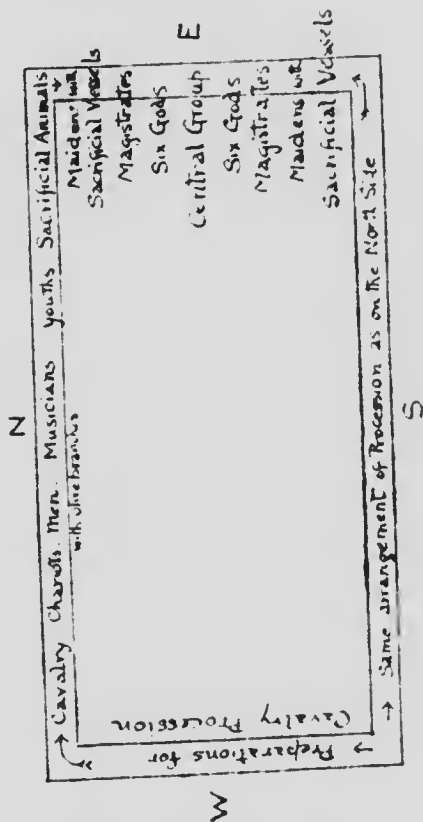 N
→ Cavalry Chariots. Men. Musicians youths Sacrificial Animals
with olive branches
E
Maidens with
Sacrificial Vessels
Magistrates
Six Gods
Central Group
Six Gods
Magistrates
Maidens with
Sacrificial Vessels
→ Same arrangement of Procession as on the North Side
S
→ Preparations for
Cavalry Procession
W